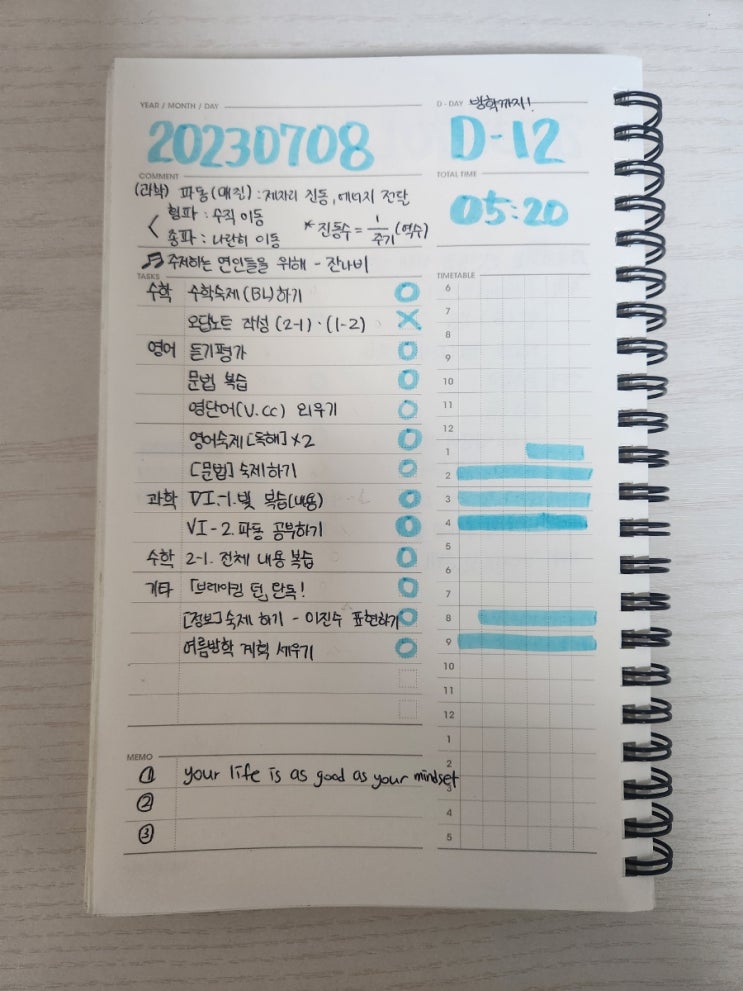 YEAR / MONTH / DAY
20230708
D-DAY 방학까지!
D-12
COMMENT
(과학) 파동(매질) : 제자리 진동, 에너지 전달
횡파 : 수직 이동
종파 : 나란히 이동
* 진동수 = 1/주기 (역수)
주저하는 연인들을 위해 - 잔나비
TOTAL TIME
05:20
TASKS
수학 수학숙제(BL)하기 O
오답노트 작성 (2-1)·(1-2) X
영어 듣기평가 O
문법 복습 O
영단어(V.CC) 외우기 O
영어숙제[독해]×2 O
[문법] 숙제하기 O
과학 VI.-1.빛 복습(내용) O
VI-2.파동 공부하기 O
수학 2-1. 전체 내용 복습 O
기타 「브레이킹 던」완독! O
[정보]숙제 하기 - 이진수 표현하기 O
여름방학 계획 세우기 O
TIMETABLE
6
7
8
9
10
11
12
1
2
3
4
5
6
7
8
9
10
11
12
1
2
3
4
5
MEMO
① your life is as good as your mindset
②
③